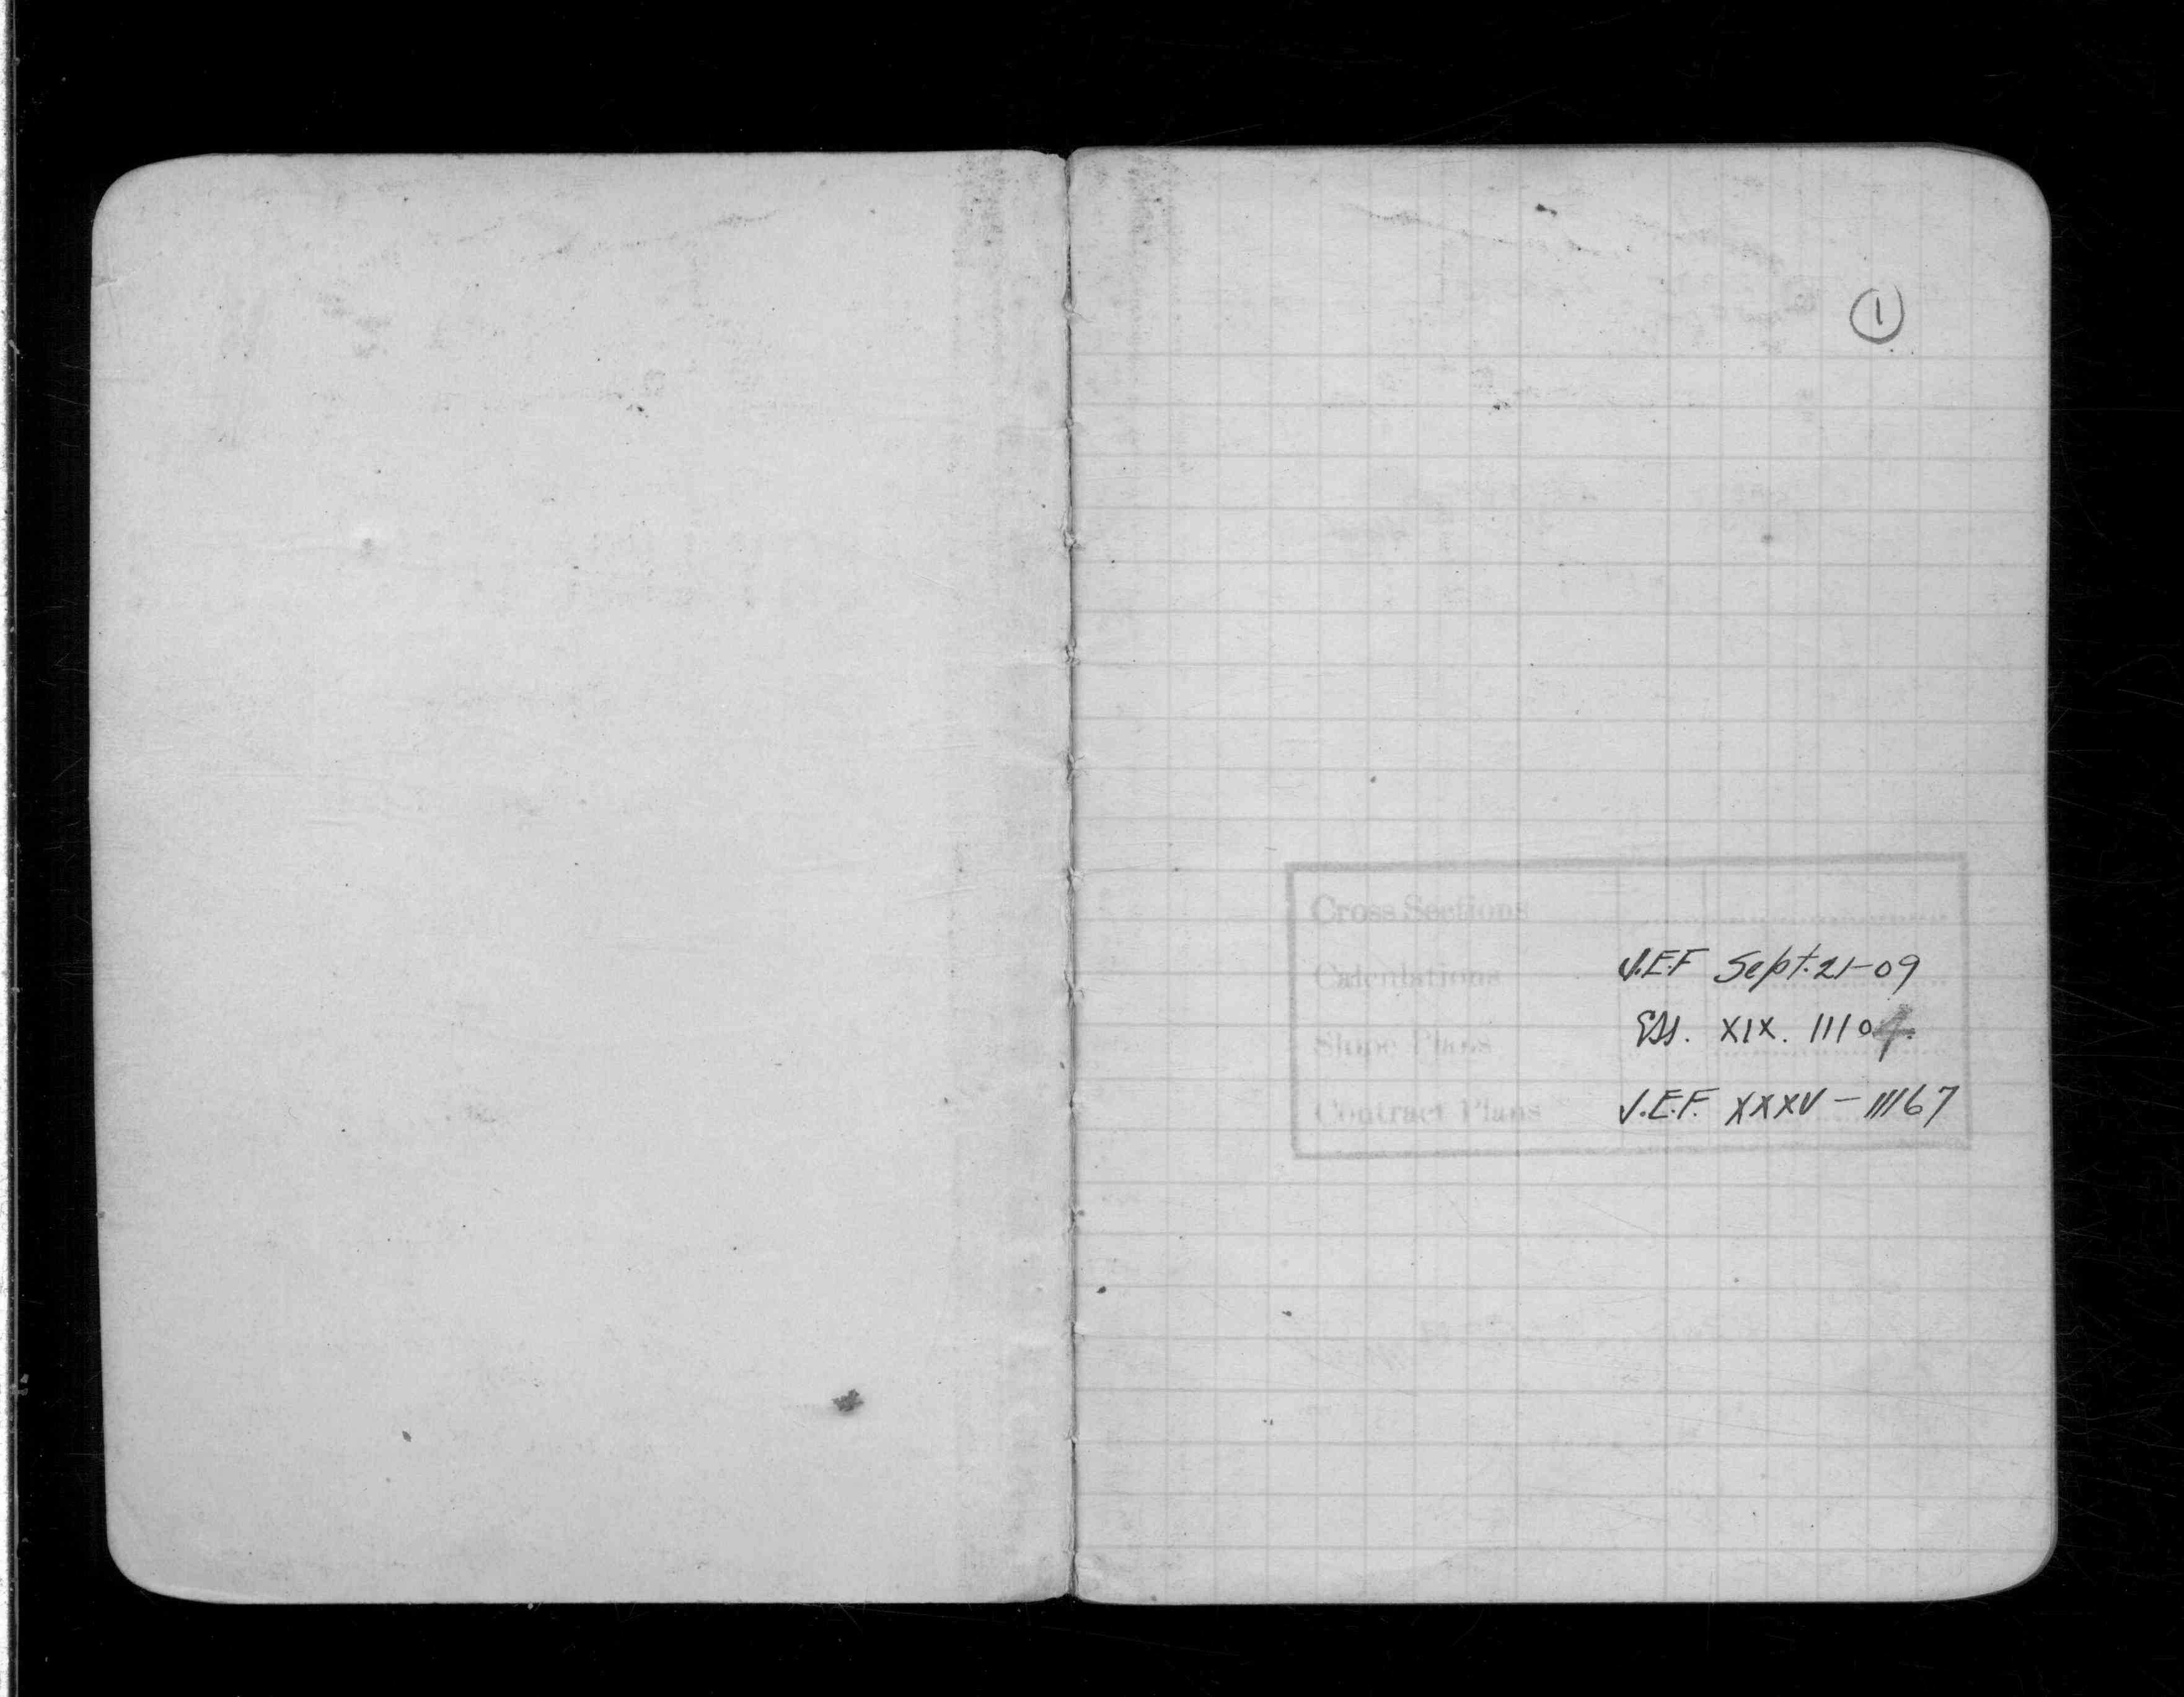 1
Cross Sections
Calculations J.E.F Sept. 21-09
Slope Plans XIX. 1110
Contract Plans J.E.F. XXXV - 11167